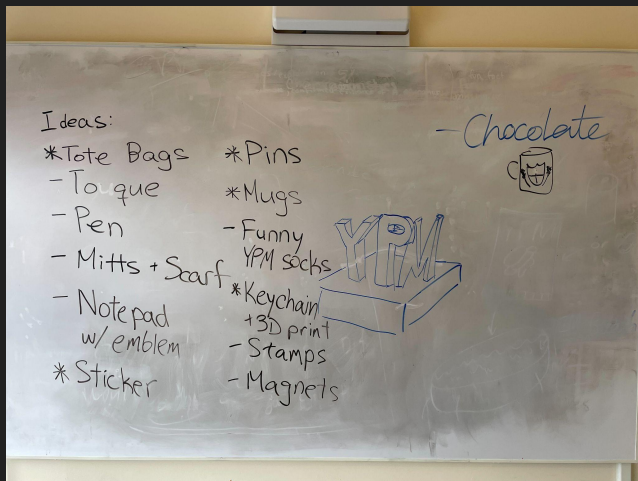 Ideas:
*Tote Bags
- Touque
- Pen
- Mitts + Scarf
- Notepad
w/ emblem
* Sticker
*Pins
*Mugs
- Funny
YPM socks
*Keychain
+3D print
- Stamps
- Magnets
YPM
- Chocolate